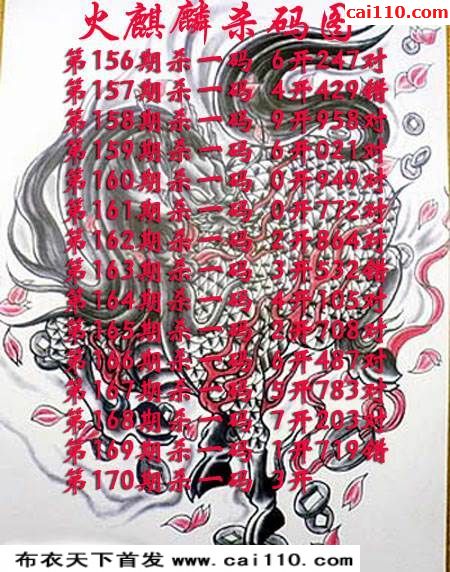 cai110.com
火麒麟杀码图
第156期杀一码 6开247对
第157期杀一码 4开429错
第158期杀一码 9开958对
第159期杀一码 6开021对
第160期杀一码 0开949对
第161期杀一码 0开772对
第162期杀一码 2开864对
第163期杀一码 3开532错
第164期杀一码 4开105对
第165期杀一码 2开708对
第166期杀一码 6开487对
第167期杀一码 5开783对
第168期杀一码 7开203对
第169期杀一码 1开719错
第170期杀一码 3开
布衣天下首发 www.cai110.com